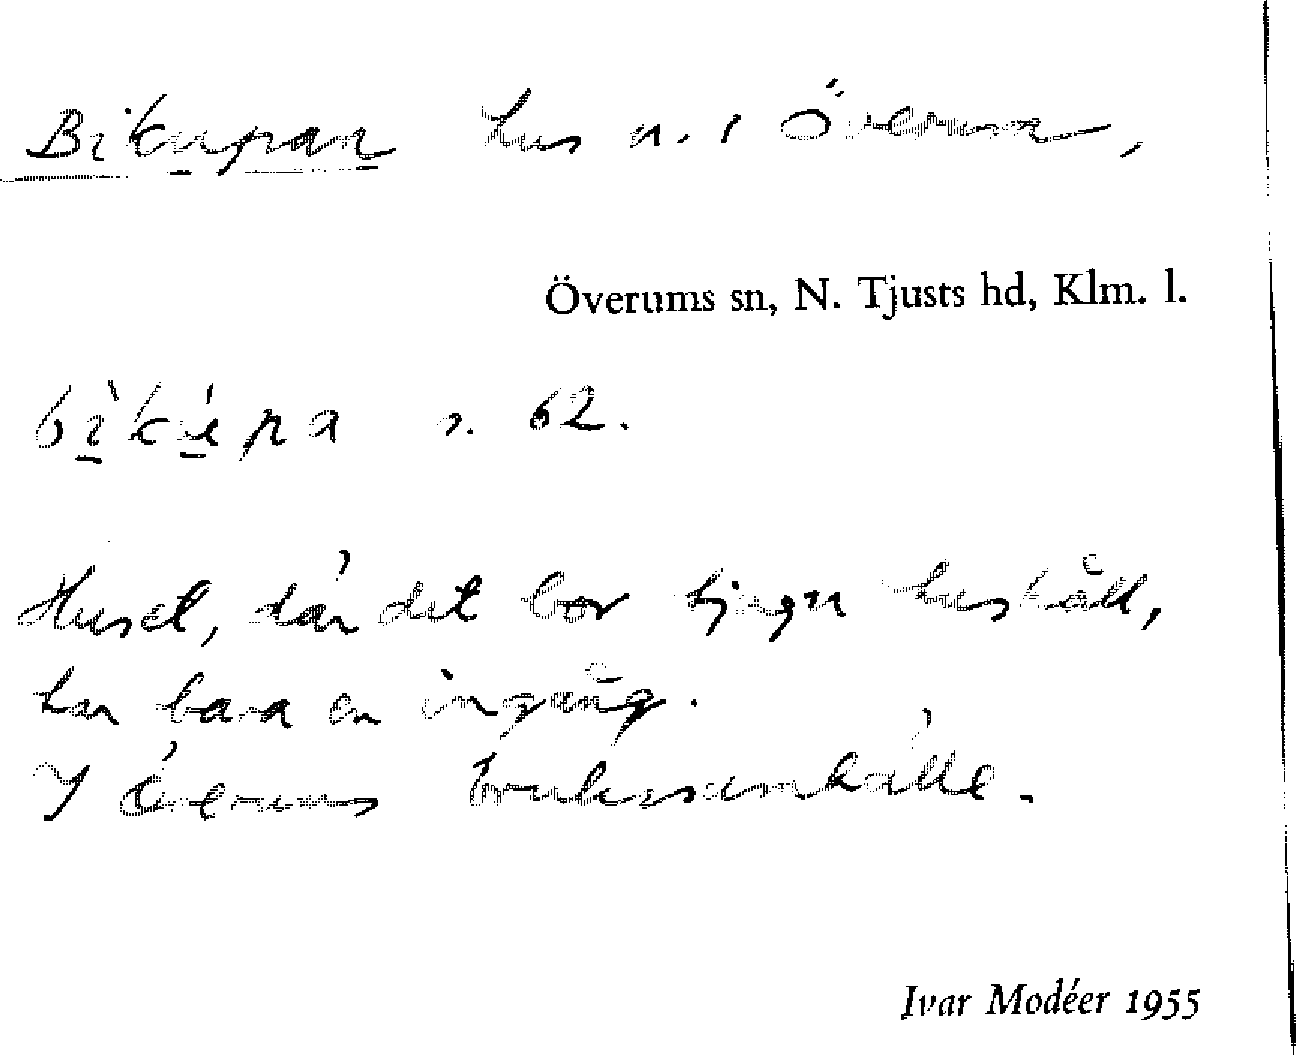 Bikupan hus n. i Överum,
Överums sn, N. Tjusts hd, Klm. l.
bìkúpa s. 62.
Huset, där det bor tjugu hushåll,
har bara en ingång.
I Överums brukssamhälle.
Ivar Modéer 1955